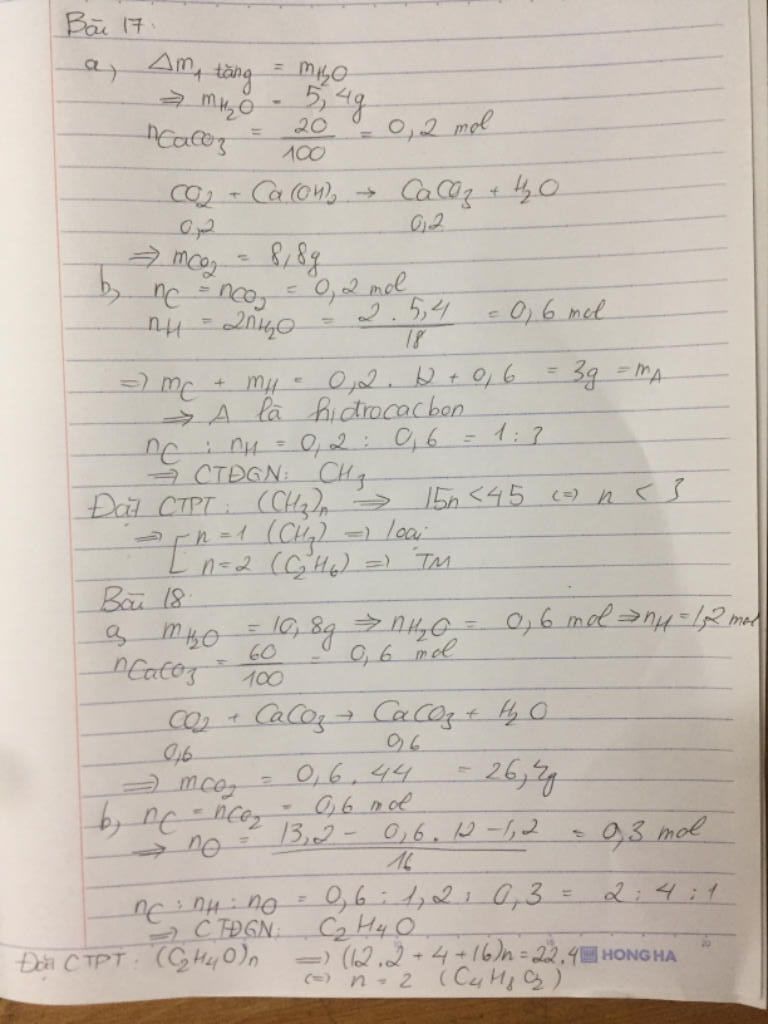 Bài 17:
a, Δm₁ tăng = mH₂O
⇒ mH₂O = 5,4g
nCaCO₃ = 20/100 = 0,2 mol
CO₂ + Ca(OH)₂ → CaCO₃ + H₂O
0,2 0,2
⇒ mCO₂ = 8,8g
b, nC = nCO₂ = 0,2 mol
nH = 2nH₂O = 2.5,4/18 = 0,6 mol
⇒ mC + mH = 0,2.12 + 0,6 = 3g = mA
⇒ A là hiđrocacbon
nC : nH = 0,2 : 0,6 = 1 : 3
⇒ CTĐGN: CH₃
Đặt CTPT: (CH₃)n ⇒ 15n < 45 ⇔ n < 3
⇒ [ n = 1 (CH₃) ⇒ loại
n = 2 (C₂H₆) ⇒ TM
Bài 18:
a, mH₂O = 10,8g ⇒ nH₂O = 0,6 mol ⇒ nH = 1,2 mol
nCaCO₃ = 60/100 = 0,6 mol
CO₂ + CaCO₃ → CaCO₃ + H₂O
0,6 0,6
⇒ mCO₂ = 0,6.44 = 26,4g
b, nC = nCO₂ = 0,6 mol
⇒ nO = 13,2 - 0,6.12 - 1,2/16 = 0,3 mol
nC : nH : nO = 0,6 : 1,2 : 0,3 = 2 : 4 : 1
⇒ CTĐGN: C₂H₄O
Đặt CTPT: (C₂H₄O)n ⇒ (12.2 + 4 + 16)n = 22.4 HONG HA 20
⇔ n = 2 (C₄H₈O₂)